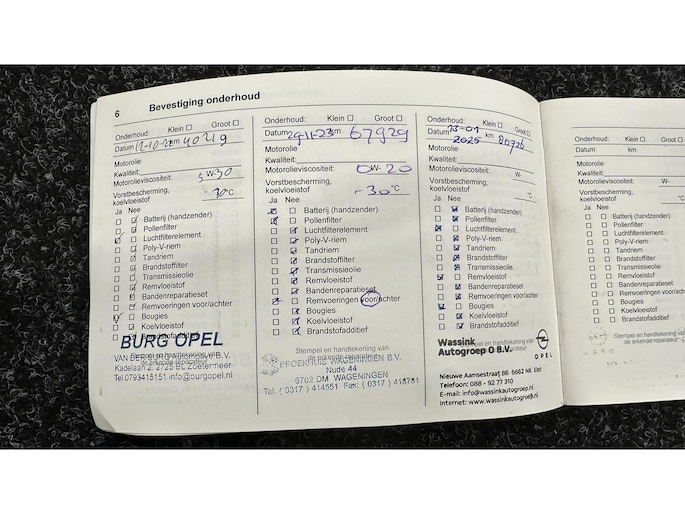 6 Bevestiging onderhoud
Onderhoud: Klein ☐ Groot ☐
Datum 12-10-21 km 40219
Motorolie
Kwaliteit:
Motorolieviscositeit: 5 W- 30
Vorstbescherming,
koelvloeistof -30 °C
Ja Nee
Batterij (handzender)
Pollenfilter
Luchtfilterelement
Poly-V-riem
Tandriem
Brandstoffilter
Transmissieolie
Remvloeistof
Bandenreparatieset
Remvoeringen voor/achter
Bougies
Koelvloeistof
BURG OPEL
Kadelaan 2, 2725 BL Zoetermeer
Tel.0793415151 info@burgopel.nl
Onderhoud: Klein ☐ Groot ☐
Datum 29-11-23 km 67929
Motorolie
Kwaliteit:
Motorolieviscositeit: 0 W- 20
Vorstbescherming,
koelvloeistof -30 °C
Ja Nee
Batterij (handzender)
Pollenfilter
Luchtfilterelement
Poly-V-riem
Tandriem
Brandstoffilter
Transmissieolie
Remvloeistof
Bandenreparatieset
Remvoeringen voor/achter
Bougies
Koelvloeistof
Brandstofadditief
Stempel en handtekening van
BROEKHUIS WAGENINGEN B.V.
Nude 44
6702 DM WAGENINGEN
Tel. ( 0317 ) 414551 Fax: ( 0317 )
Onderhoud: Klein ☐ Groot ☐
Datum 13-01 2025 km
Motorolie
Kwaliteit:
Motorolieviscositeit: W-
Vorstbescherming,
koelvloeistof °C
Ja Nee
Batterij (handzender)
Pollenfilter
Luchtfilterelement
Poly-V-riem
Tandriem
Brandstoffilter
Transmissieolie
Remvloeistof
Bandenreparatieset
Remvoeringen voor/achter
Bougies
Koelvloeistof
Brandstofadditief
Stempel en handtekening van
Wassink
Autogroep O B.V.
OPEL
Nieuwe Aamsestraat 86 6662 NK Elst
Telefoon: 088 - 92 77 310
E-mail: info@wassinkautogroep.nl
Internet: www.wassinkautogroep.nl
Onderhoud: Klein ☐ Groot ☐
Datum km
Motorolie
Kwaliteit:
Motorolieviscositeit: W-
Vorstbescherming,
koelvloeistof °C
Ja Nee
Batterij (handzender)
Pollenfilter
Luchtfilterelement
Poly-V-riem
Tandriem
Brandstoffilter
Transmissieolie
Remvloeistof
Bandenreparatieset
Remvoeringen voor/achter
Bougies
Koelvloeistof
Brandstofadditief
Stempel en handtekening van